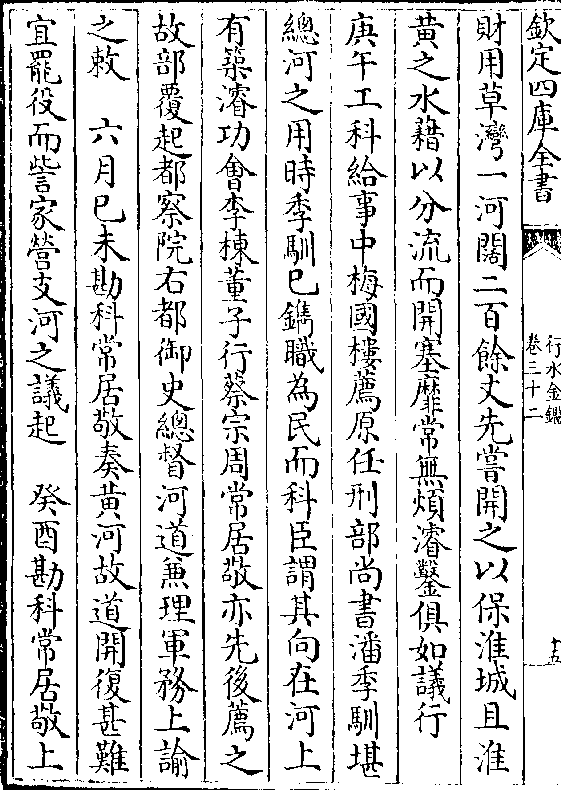 欽定四庫全書
行水金鑑
卷三十二
十五
財用草灣一河闊二百餘丈先嘗開之以保淮城且淮
黄之水藉以分流而開塞靡常無煩濬鑿俱如議行
庚午工科給事中梅國樓薦原任刑部尚書潘季馴堪
總河之用時季馴已鐫職為民而科臣謂其向在河上
有築濬功會李棟董子行蔡宗周常居敬亦先後薦之
故部覆起都察院右都御史總督河道兼理軍務上諭
之敕　六月己未勘科常居敬奏黄河故道開復甚難
宜罷役而訾家營支河之議起　癸酉勘科常居敬上